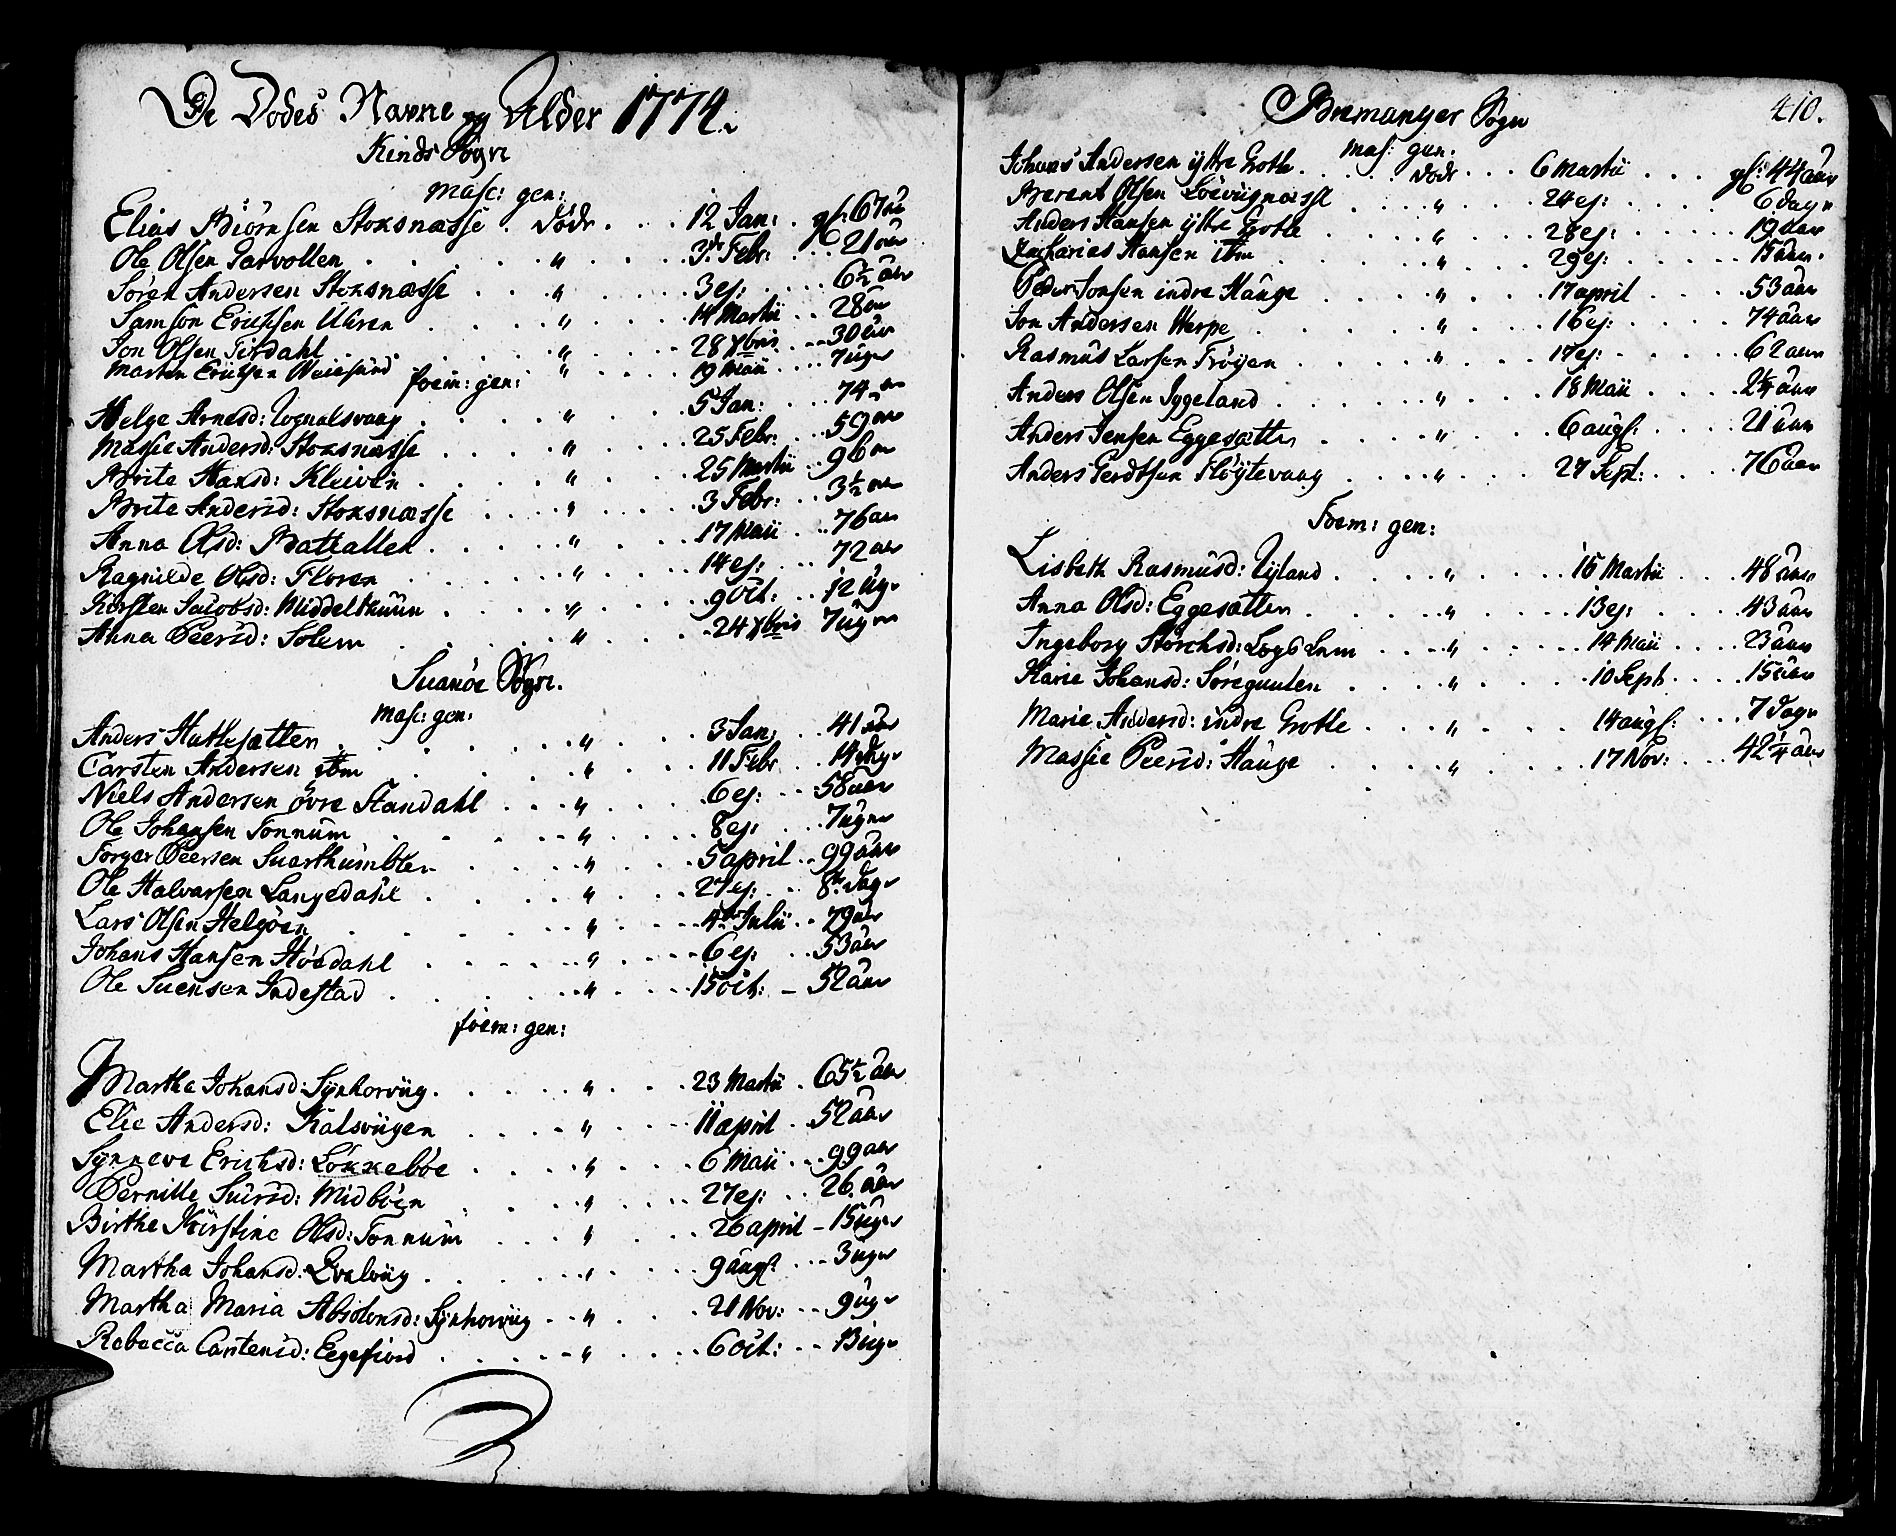 De Dødes Navne og Alder 1774.
Kinds Sogn
Masc: gen:
Elias Biørnsen Stoksnæsse . død . . . 12 Jan: . . gl: 67 aar
Ole Olsen Tarvollen . . . " . . . 3de Febr: . . . 21 aar
Søren Andersen Stoksnæsse . . . " . . . 3 ej: . . . 6½ aar
Samson Erichsen Uhren . . . " . . . 14 Martii . . 28 aar
Jon Olsen Tirdahl . . . " . . . 28 Xbris . . . 30 aar
Marten Erichsen Weiesund . " . . . 19 Maii . . . 7 uger
foem: gen:
Helge Arnesd: Rognalsvaag . . . " . . . 5 Jan: . . . 74 aar
Massie Andersd: Stoksnæsse . . . " . . . 25 Febr: . . . 59 aar
Brite Hansd: Kleiven . . . " . . . 25 Martii . . 96 aar
Brite Andersd: Stoksnæsse . . . " . . . 3 Febr: . . . 3½ aar
Anna Olsd: Battalden . . . " . . . 17 Maii . . . 76 aar
Ragnilde Olsd: Floren . . . " . . . 14 ej: . . . 72 aar
Kirsten Jacobsd: Middelthuun . . . " . . . 9 Oct: . . . 12 Uger
Anna Peersd: Solem . . . " . . . 24 Xbris 7 uger
Suanøe Sogn.
Masc: gen:
Anders Hattesætten . . . " . . . 3 Jan: . . . 41 aar
Carsten Andersen ibm . . . " . . . 11 Febr . . . 14 dage
Niels Andersen øvre Standahl . . . " . . . 6 ej: . . . 58 aar
Ole Johansen Tonnum . . . " . . . 8 ej: . . . 7 uger
Torger Peersen Suarthumblen . . . " . . . 5 april . . 99 aar
Ole Halvarsen Langedahl . . . " . . . 27 ej: . . 8te dage
Lars Olsen Helgøen . . . " . . . 4de Julii . . 79 aar
Johans Hansen Høedahl . . . " . . . 6 ej: . . . 53 aar
Ole Suensen Indestad . . . " . . . 15 Oct: – 52 aar
foem: gen:
Martha Johansd: Synhorvüg . . . " . . . 23 Martii . 65½ aar
Elie Andersd: Kalsvügen . . . " . . . 11 april . 52 aar
Synneve Erichsd: Løkkebøe . . . " . . . 6 Maii . . . 99 aar
Pernille Suersd: Midbøen . . . " . . . 27 ej: . . 26 aar
Birthe Kirstine Olsd: Tonnum . . . " . . . 26 april – 15 uger
Martha Johansd: Qvalvüg . . . " . . . 9 Aügs: . . . 3 uger
Martha Maria Absolonsd: Synhorvüg . . " . . . 21 Nov: . . . 9 uger
Rebecca Carstensd: Eegefiord . . . " . . . 6 Oct: . . . 13 uger
Bremanger Sogn
410.
Mas: gen:
Johans Andersen yttre Grotle . . . dødr . . . 6 Martii . . . gl: 44 aar
Berent Olsen Løevügnæsse . . . " . . . 24 ej: . . . 6 dage
Anders Hansen yttre Grotle . . . " . . . 28 ej: . . . 19 aar
Zacharias Hansen ibm . . . " . . . 29 ej: . . . 15 aar.
Peder Jonsen indre Hauge . . . " . . . 17 april . . . 53 aar
Jon Andersen Warpe . . . " . . . 16 ej: . . . 74 aar
Rasmus Larsen Frøyen . . . " . . . 17 ej: . . . 62 aar
Anders Olsen Iggeland . . . " . . . 18 Maii . . . 2¼ aar
Anders Jensen Eggesætter . . . " . . . 6 augs: . . . 21 aar
Anders Gerdtsen Fløytevaag . . . " . . . 27 Sept: . . . 76 aar
Foem: gen:
Lisbeth Rasmusd: Ryland . . . " . . . 15 Martii . . . 48 aar
Anna Olsd: Eggesætter . . . " . . . 13 ej: . . . 43 aar
Ingeborg Størchsd: . . . " . . . 14 Maii . . . 23 aar
Karie Johansd: Søregunlen . . . " . . . 10 Sept . . . 15 aar
Marie Andersd: indre Grotle . . . " . . . 14 augs: . . . 7 dage
Massie Peersd: Hauge . . . " . . . 17 Nov: . . . 42¼ aar